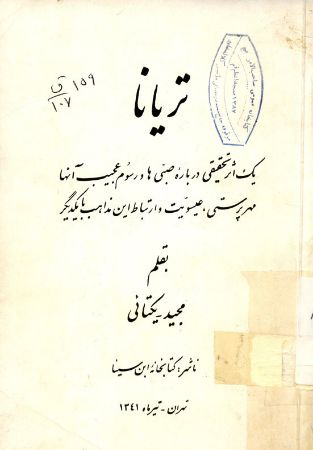 ۱۵۹
ق
۱۰۷
تریانا
یک اثر تحقیقی درباره صبّی ها و رسوم عجیب آنها
مهرپرستی، عیسویت و ارتباط این مذاهب با یکدیگر
بقلم
مجید-یکتائی
ناشر: کتابخانهٔ ابن سینا
تهران - تیرماه ۱۳۴۱